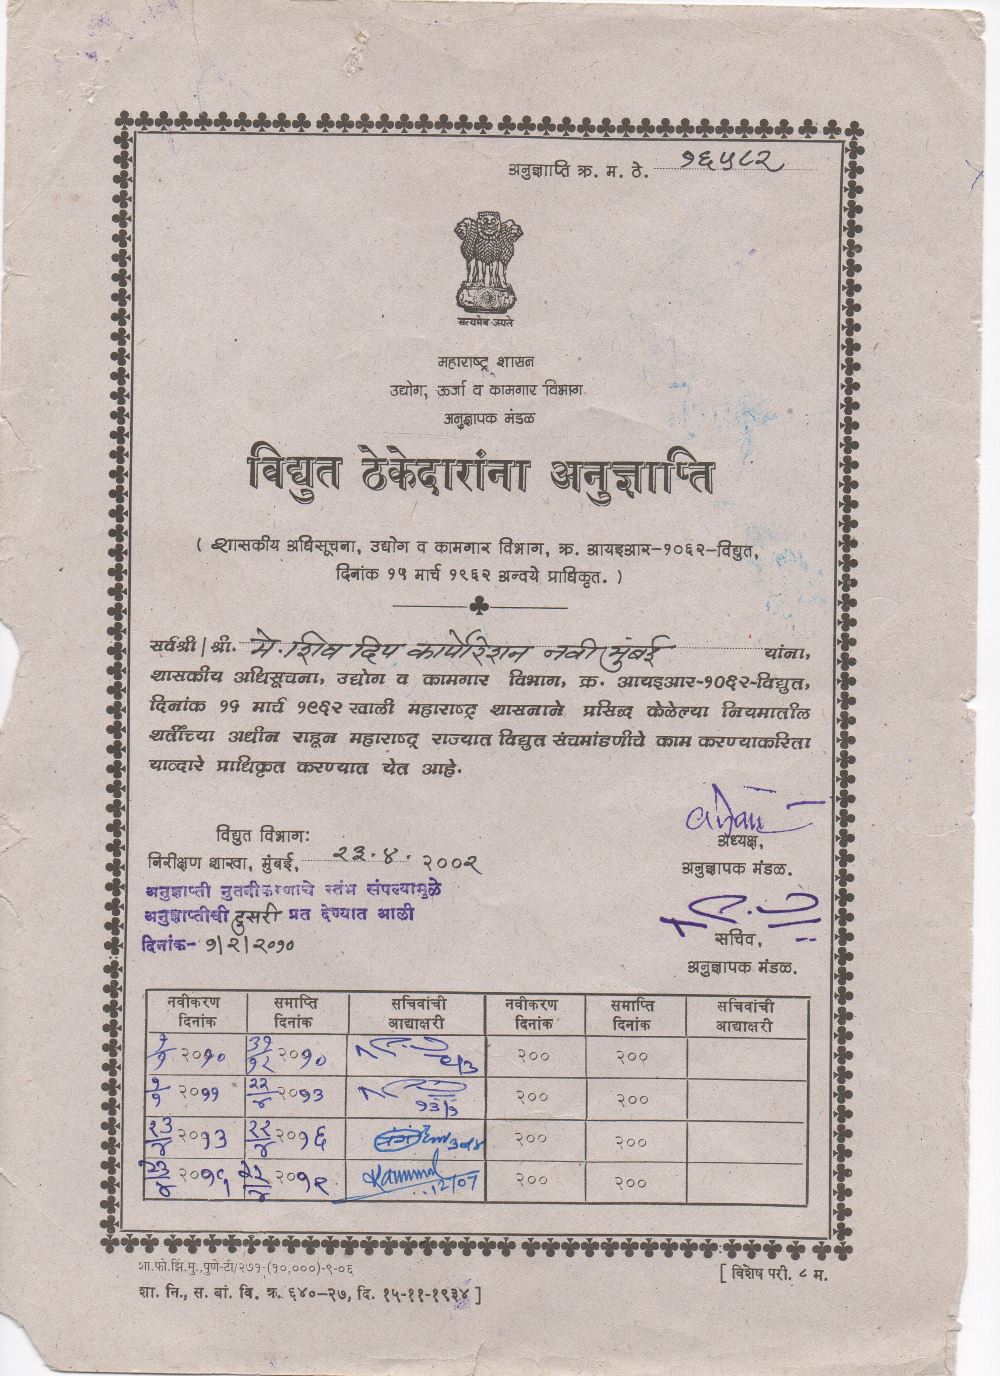 अनुज्ञाप्ति क्र. म. ठे. १६५८२
सत्यमेव जयते
महाराष्ट्र शासन
उद्योग, ऊर्जा व कामगार विभाग
अनुज्ञापक मंडळ
विद्युत ठेकेदारांना अनुज्ञाप्ति
( शासकीय अधिसूचना, उद्योग व कामगार विभाग, क्र. आयइआर-१०६२-विद्युत,
दिनांक १५ मार्च १९६२ अन्वये प्राधिकृत. )
सर्वश्री/श्री. मे. शिव दिप कार्पोरेशन नवी मुंबई यांना,
शासकीय अधिसूचना, उद्योग व कामगार विभाग, क्र. आयइआर-१०६२-विद्युत,
दिनांक १५ मार्च १९६२ खाली महाराष्ट्र शासनाने प्रसिद्ध केलेल्या नियमातील
शर्तींच्या अधीन राहून महाराष्ट्र राज्यात विद्युत संचमांडणीचे काम करण्याकरिता
याव्दारे प्राधिकृत करण्यात येत आहे.
अध्यक्ष,
अनुज्ञापक मंडळ.
विद्युत विभाग:
निरीक्षण शाखा, मुंबई, २३.४. २००२
अनुज्ञाप्ती नुतनीकरणाचे स्तंभ संपल्यामुळे
अनुज्ञाप्तीची दुसरी प्रत देण्यात आली
दिनांक- १/२/२०१०
सचिव,
अनुज्ञापक मंडळ.
नवीकरण दिनांक समाप्ति दिनांक सचिवांची आद्याक्षरी नवीकरण दिनांक समाप्ति दिनांक सचिवांची आद्याक्षरी
१/१ २०१० ३१/१२ २०१० २०० २००
१/१ २०११ २२/४ २०१३ २०० २००
२३/४ २०१३ २२/४ २०१६ २०० २००
२३/४ २०१६ २२/४ २०१९ 12/07 २०० २००
शा.फो.झिं.मु.,पुणे-टी/२७१-(१०,०००)-९-०६
[ विशेष परी. ८ म.
शा. नि., स. बां. वि. क्र. ६४०-२७, दि. १५-११-१९३४ ]